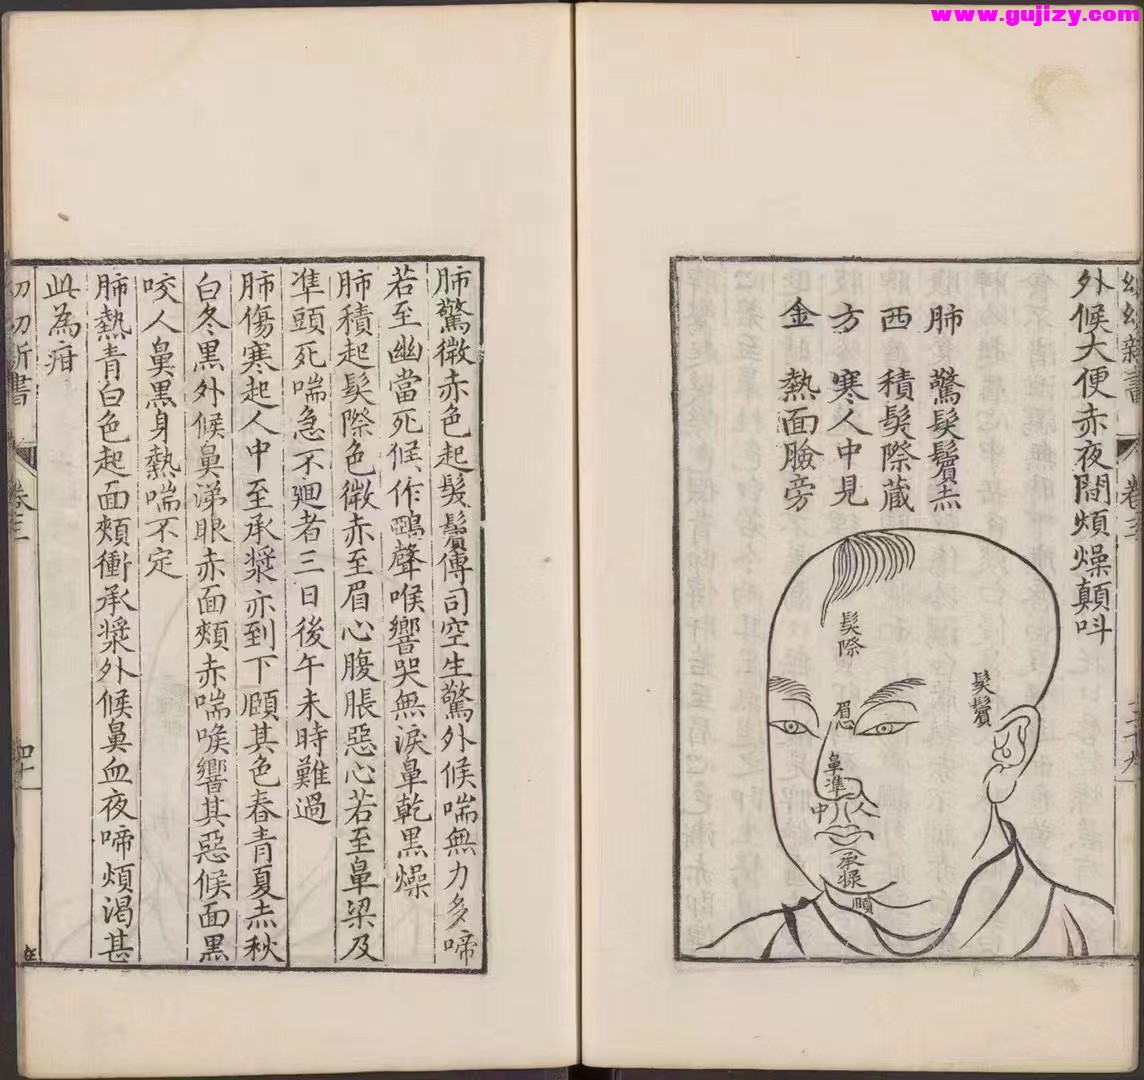 www.gujizy.com
幼幼新書
卷三
外候大便赤夜間煩燥顛呌
肺驚髮鬢赤
西積髮際藏
方寒人中見
金熱面臉旁
髮際
髮鬢
眉心
鼻準
人中
承漿
頤
肺驚微赤色起髮鬢傳司空生驚外候喘無力多啼
若至幽當死候作鸊聲喉響哭無淚鼻乾黑燥
肺積起髮際色微赤至眉心腹脹惡心若至鼻梁及
凖頭死喘急不廻者三日後午未時難過
肺傷寒起人中至承漿亦到下頤其色春青夏赤秋
白冬黑外候鼻涕眼赤面頰赤喘喉響其惡候面黑
咬人鼻黑身熱喘不定
肺熱青白色起面頰衝承漿外候鼻血夜啼煩渴甚
此為疳
幼幼新書
卷三